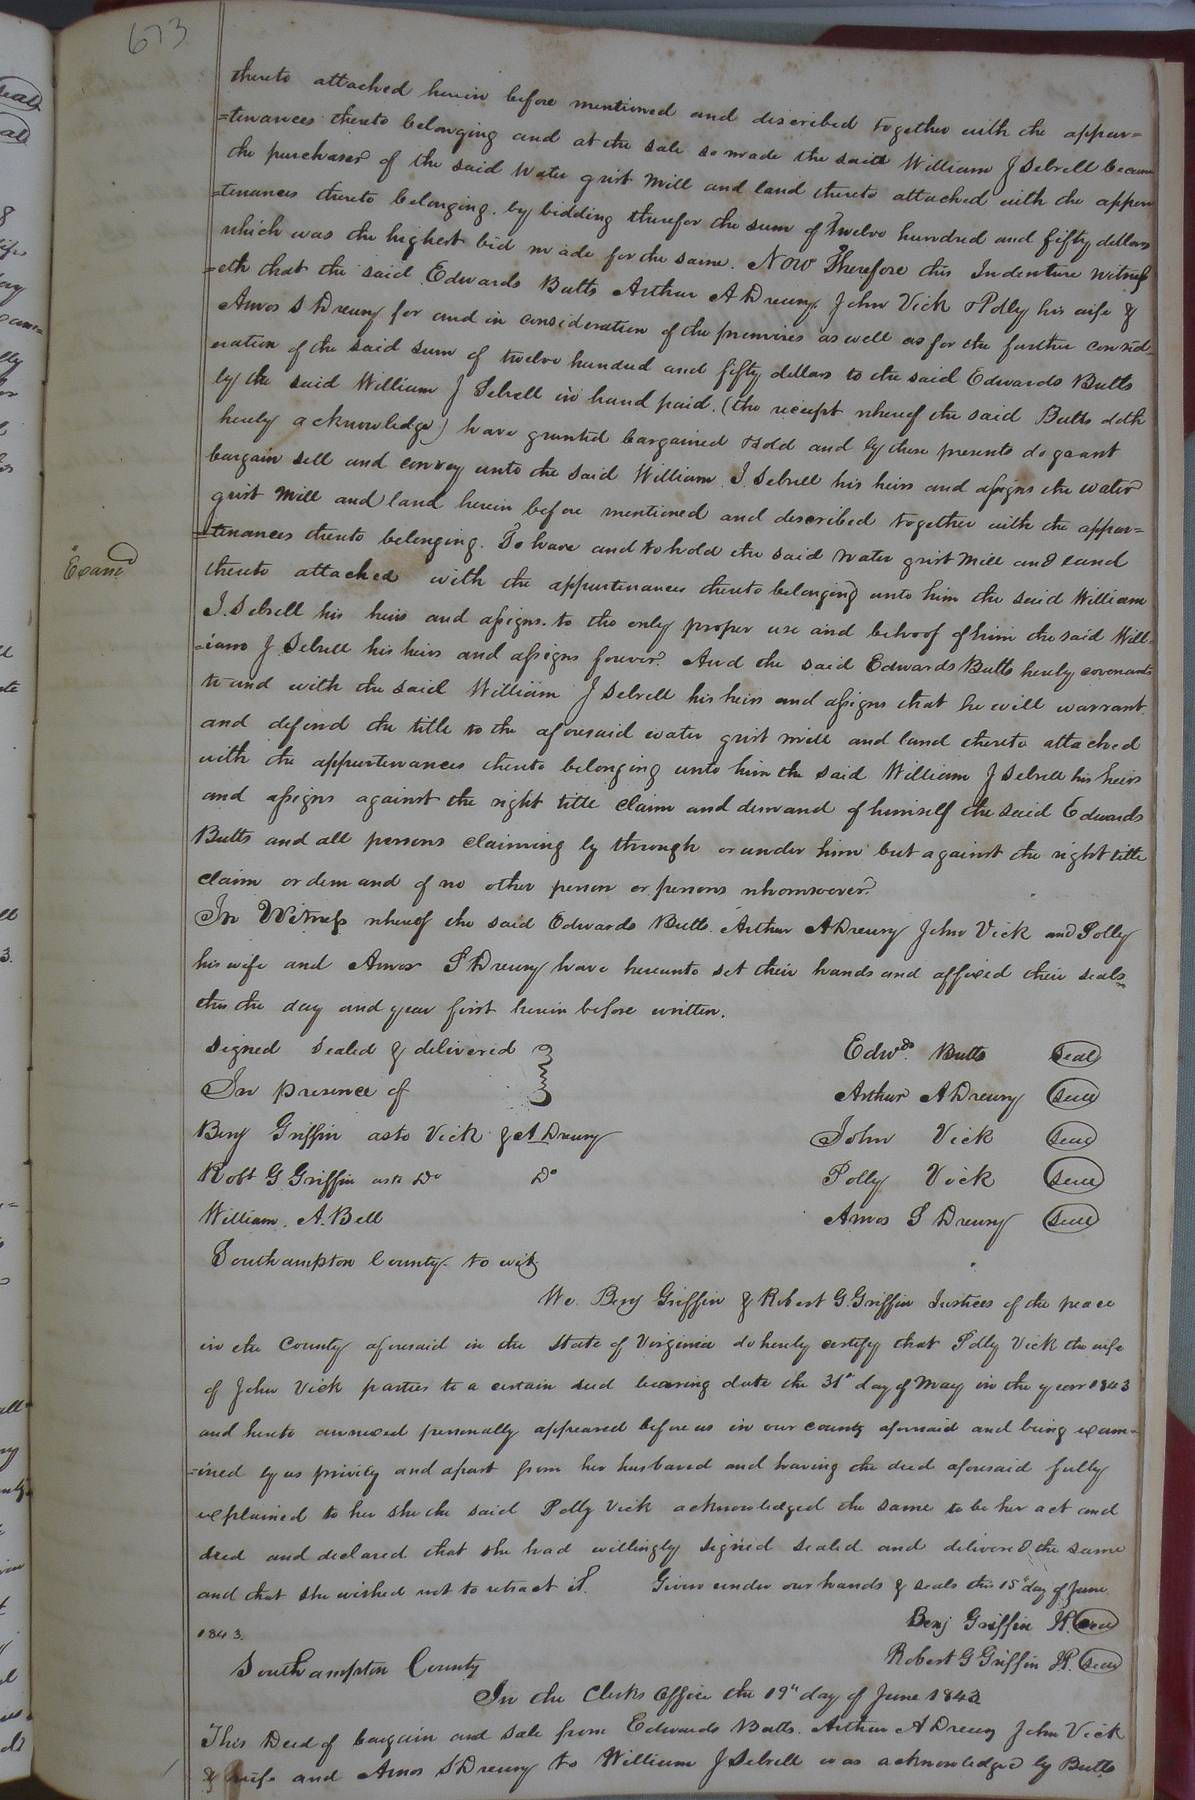 673
thereto attached herein before mentioned and discribed together with the appur=
=tenances thereto belonging and at the sale so made the said William J Sebrell became
the purchaser of the said Water grist Mill and land thereto attached with the appur
=tenances thereto belonging. by bidding therefor the sum of Twelve hundred and fifty dollars
which was the highest bid made for the same. Now Therefore this Indenture Witness
=eth that the said Edwards Butts Arthur A Drewry John Vick & Polly his wife &
Amos S Drewry for and in consideration of the premises as well as for the further consid=
eration of the said sum of twelve hundred and fifty dollars to the said Edwards Butts
by the said William J Sebrell in hand paid. (the receipt whereof the said Butts doth
hereby acknowledge) have granted bargained & sold and by these presents do grant
bargain sell and convey unto the said William J. Sebrell his heirs and assigns the water
grist mill and land herein before mentioned and described together with the appur=
=tenances thereto belonging. To have and to hold the said water grist Mill and land
thereto attached with the appurtenances thereto belonging unto him the said William
J. Sebrell his heirs and assigns. to the only proper use and behoof of him the said Will=
=iam J Sebrell his heirs and assigns forever. And the said Edwards Butts hereby covenants
to and with the said William J Sebrell his heirs and assigns that he will warrant
and defend the title to the aforesaid water grist mill and land thereto attached
with the appurtenances thereto belonging unto him the said William J Sebrell his heirs
and assigns against the right title claim and demand of himself the said Edwards
Butts and all persons claiming by through or under him but against the right title
claim or demand of no other person or persons whomsoever.
Examd
In Witness whereof the said Edwards Butts. Arthur A Drewry John Vick and Polly
his wife and Amos S Drewry have hereunto set their hands and affixed their seals
this the day and year first herein before written.
Signed Sealed & delivered
In presence of
Benj Griffin as to Vick & A Drewry
Robt G Griffin as to Do Do
William. A. Bell
Edwds. Butts Seal
Arthur A Drewry Seal
John Vick Seal
Polly Vick Seal
Amos S Drewry Seal
Southampton County. to wit
We Benj Griffin & Robert G. Griffin Justices of the peace
in the County aforesaid in the State of Virginia do hereby certify that Polly Vick the wife
of John Vick parties to a certain deed bearing date the 31st day of May in the year 1843
and hereto annexed personally appeared before us in our county aforesaid and being exam=
=ined by us privily and apart from her husband and having the deed aforesaid fully
explained to her she the said Polly Vick acknowledged the same to be her act and
deed and declared that she had willingly signed sealed and delivered the same
and that she wished not to retract it. Given under our hands & seals this 15th day of June
1843.
Benj Griffin JP. Seal
Robert G Griffin JP. Seal
Southampton County
In the Clerks Office the 19th day of June 1843
This Deed of bargain and sale from Edwards Butts. Arthur A Drewry John Vick
& wife and Amos S Drewry to William J Sebrell was acknowledged by Butts